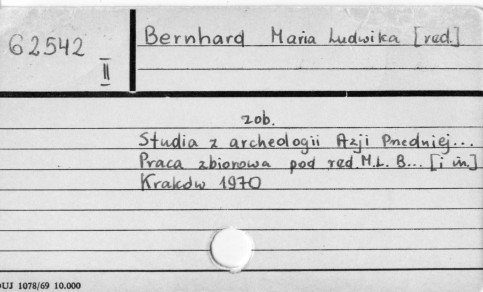 62542
II
Bernhard Maria Ludwika [red.]
zob.
Studia z archeologii Azji Przedniej...
Praca zbiorowa pod red. M.L. B... [i in.]
Kraków 1970
DUJ 1078/69 10.000